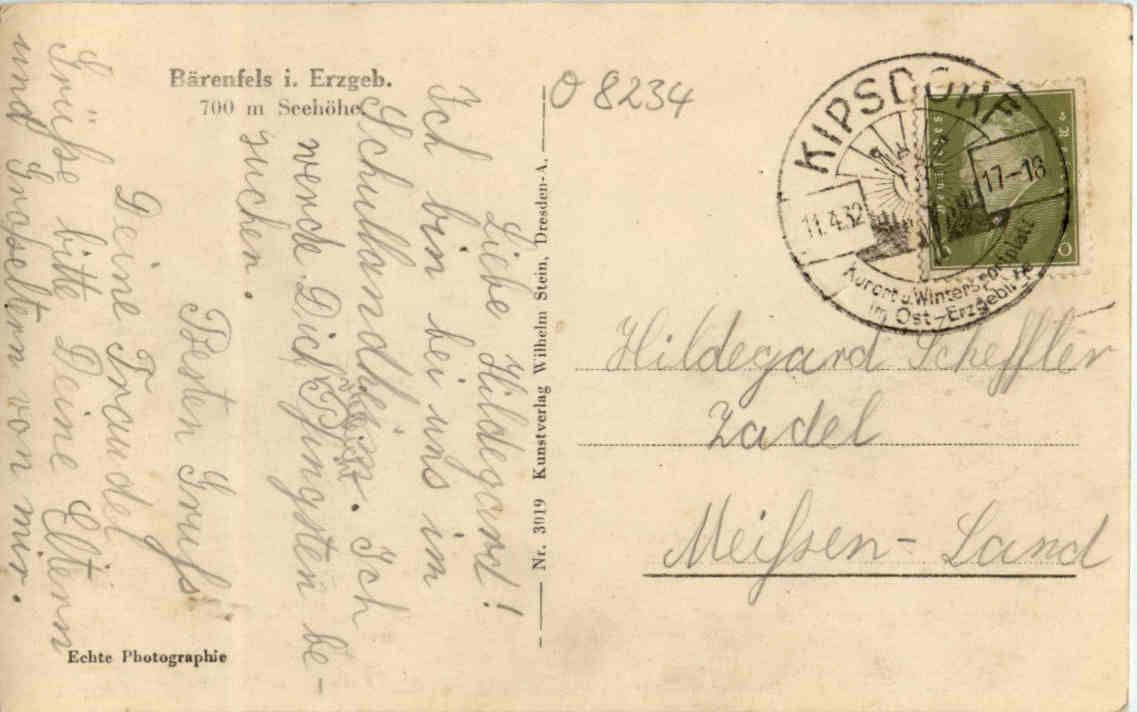 Bärenfels i. Erzgeb.
700 m Seehöhe
Liebe Hildegard!
Ich bin bei uns im
Schullandheim. Ich
werde Dich Pfingsten be-
suchen.
Besten Gruß
Deine Traudel
Grüße bitte Deine Eltern
und Großeltern von mir.
Echte Photographie
Nr. 3919 Kunstverlag Wilhelm Stein, Dresden-A.
O 8234
KIPSDORF
11.4.32
17-18
Kurort u. Wintersportplatz
im Ost-Erzgebirge
Hildegard Scheffler
Zadel
Meißen-Land